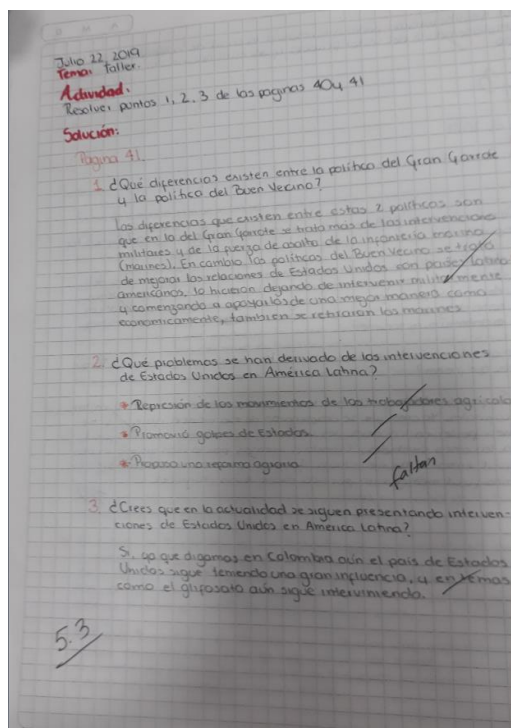 Julio 22, 2019
Tema: Taller.
Actividad:
Resolver puntos 1, 2, 3 de las paginas 40 y 41
Solución:
Pagina 41.
1. ¿Qué diferencias existen entre la politica del Gran Garrote
y la politica del Buen Vecino?
Las diferencias que existen entre estas 2 politicas son
que en la del Gran Garrote se trata mas de las intervenciones
militares y de la fuerza de asalto de la infanteria marina
(marines). En cambio las politicas del Buen Vecino se trato
de mejorar las relaciones de Estados Unidos con paises latino
americanos, lo hicieron dejando de intervenir militarmente
y comenzando a apoyarlos de una mejor manera como
economicamente, tambien se retiraron los marines.
2. ¿Qué problemas se han derivado de las intervenciones
de Estados Unidos en América Latina?
* Represión de los movimientos de los trabajadores agricola
* Promovió golpes de Estados
* una reforma agraria
faltan
3. ¿Crees que en la actualidad se siguen presentando interven-
ciones de Estados Unidos en America Latina?
Si, ya que digamos en Colombia aún el pais de Estados
Unidos sigue teniendo una gran influencia, y en temas
como el glifosato aún sigue interviniendo.
5.3